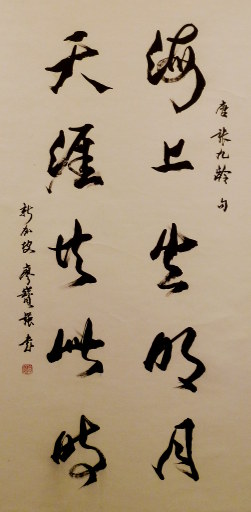 唐張九齡句
海上生明月
天涯共此時
新加坡廖寶強書